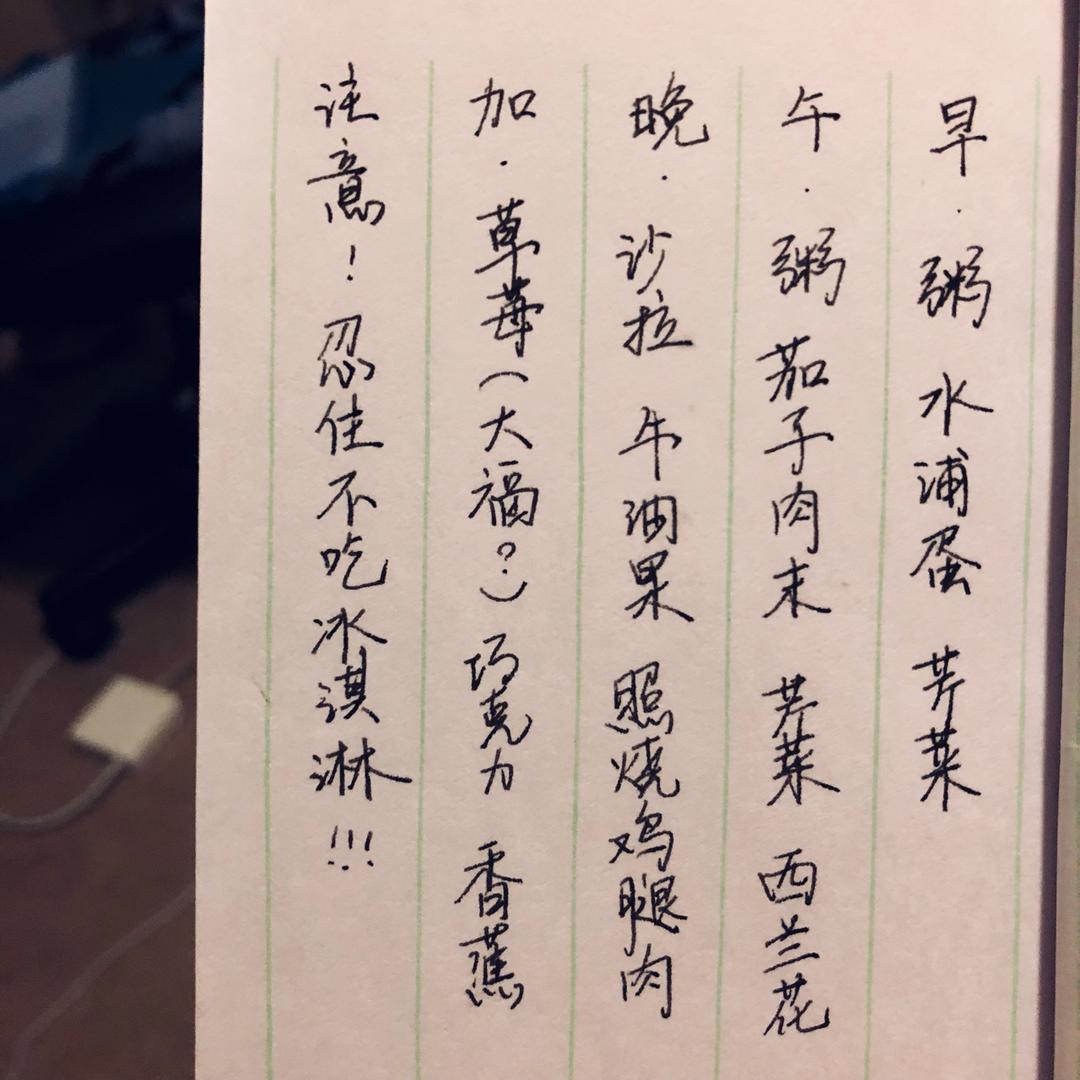 早·粥 水浦蛋 芹菜
午·粥 茄子肉末 芹菜 西兰花
晚·沙拉 牛油果 照烧鸡腿肉
加·草莓(大福?) 巧克力 香蕉
注意!忍住不吃冰淇淋!!!